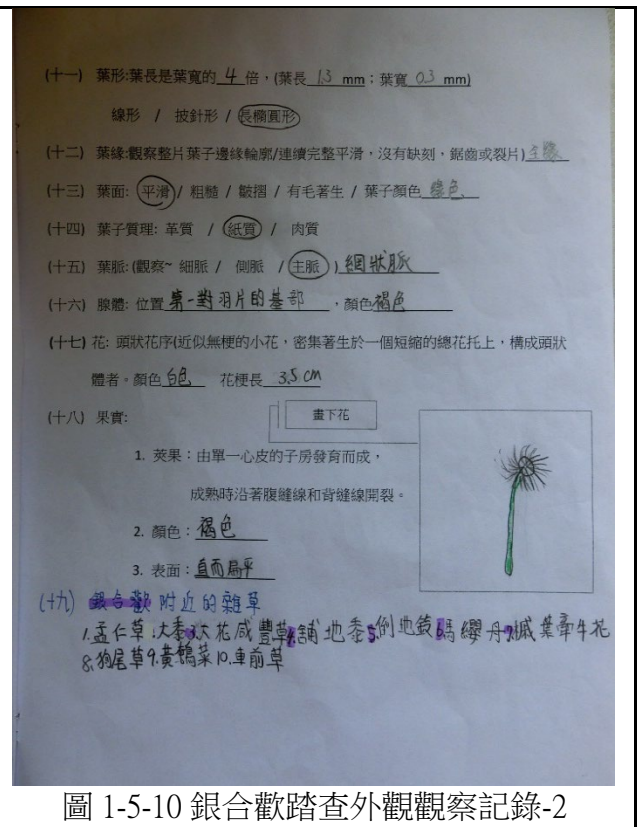 (十一) 葉形:葉長是葉寬的 4 倍，(葉長 1.3 mm：葉寬 0.3 mm)
線形 / 披針形 / 長橢圓形
(十二) 葉緣:觀察整片葉子邊緣輪廓/連續完整平滑，沒有缺刻，鋸齒或裂片)
(十三) 葉面: 平滑 / 粗糙 / 皺摺 / 有毛著生 / 葉子顏色 綠色
(十四) 葉子質理: 革質 / 紙質 / 肉質
(十五) 葉脈:(觀察~ 細脈 / 側脈 / 主脈 ) 網狀脈
(十六) 腺體: 位置 第一對羽片的基部 ，顏色 褐色
(十七) 花: 頭狀花序(近似無梗的小花，密集著生於一個短縮的總花托上，構成頭狀
體者。顏色 白色 花梗長 3.5 cm
(十八) 果實:
畫下花
1. 莢果：由單一心皮的子房發育而成，
成熟時沿著腹縫線和背縫線開裂。
2. 顏色：褐色
3. 表面：直而扁平
(十九) 銀合歡附近的雜草
1.孟仁草 2.大黍 3.大花咸豐草 4.舖地黍 5.倒地鈴 6.馬纓丹 7.槭葉牽牛花
8.狗尾草 9.黃鵪菜 10.車前草
圖 1-5-10 銀合歡踏查外觀觀察記錄-2